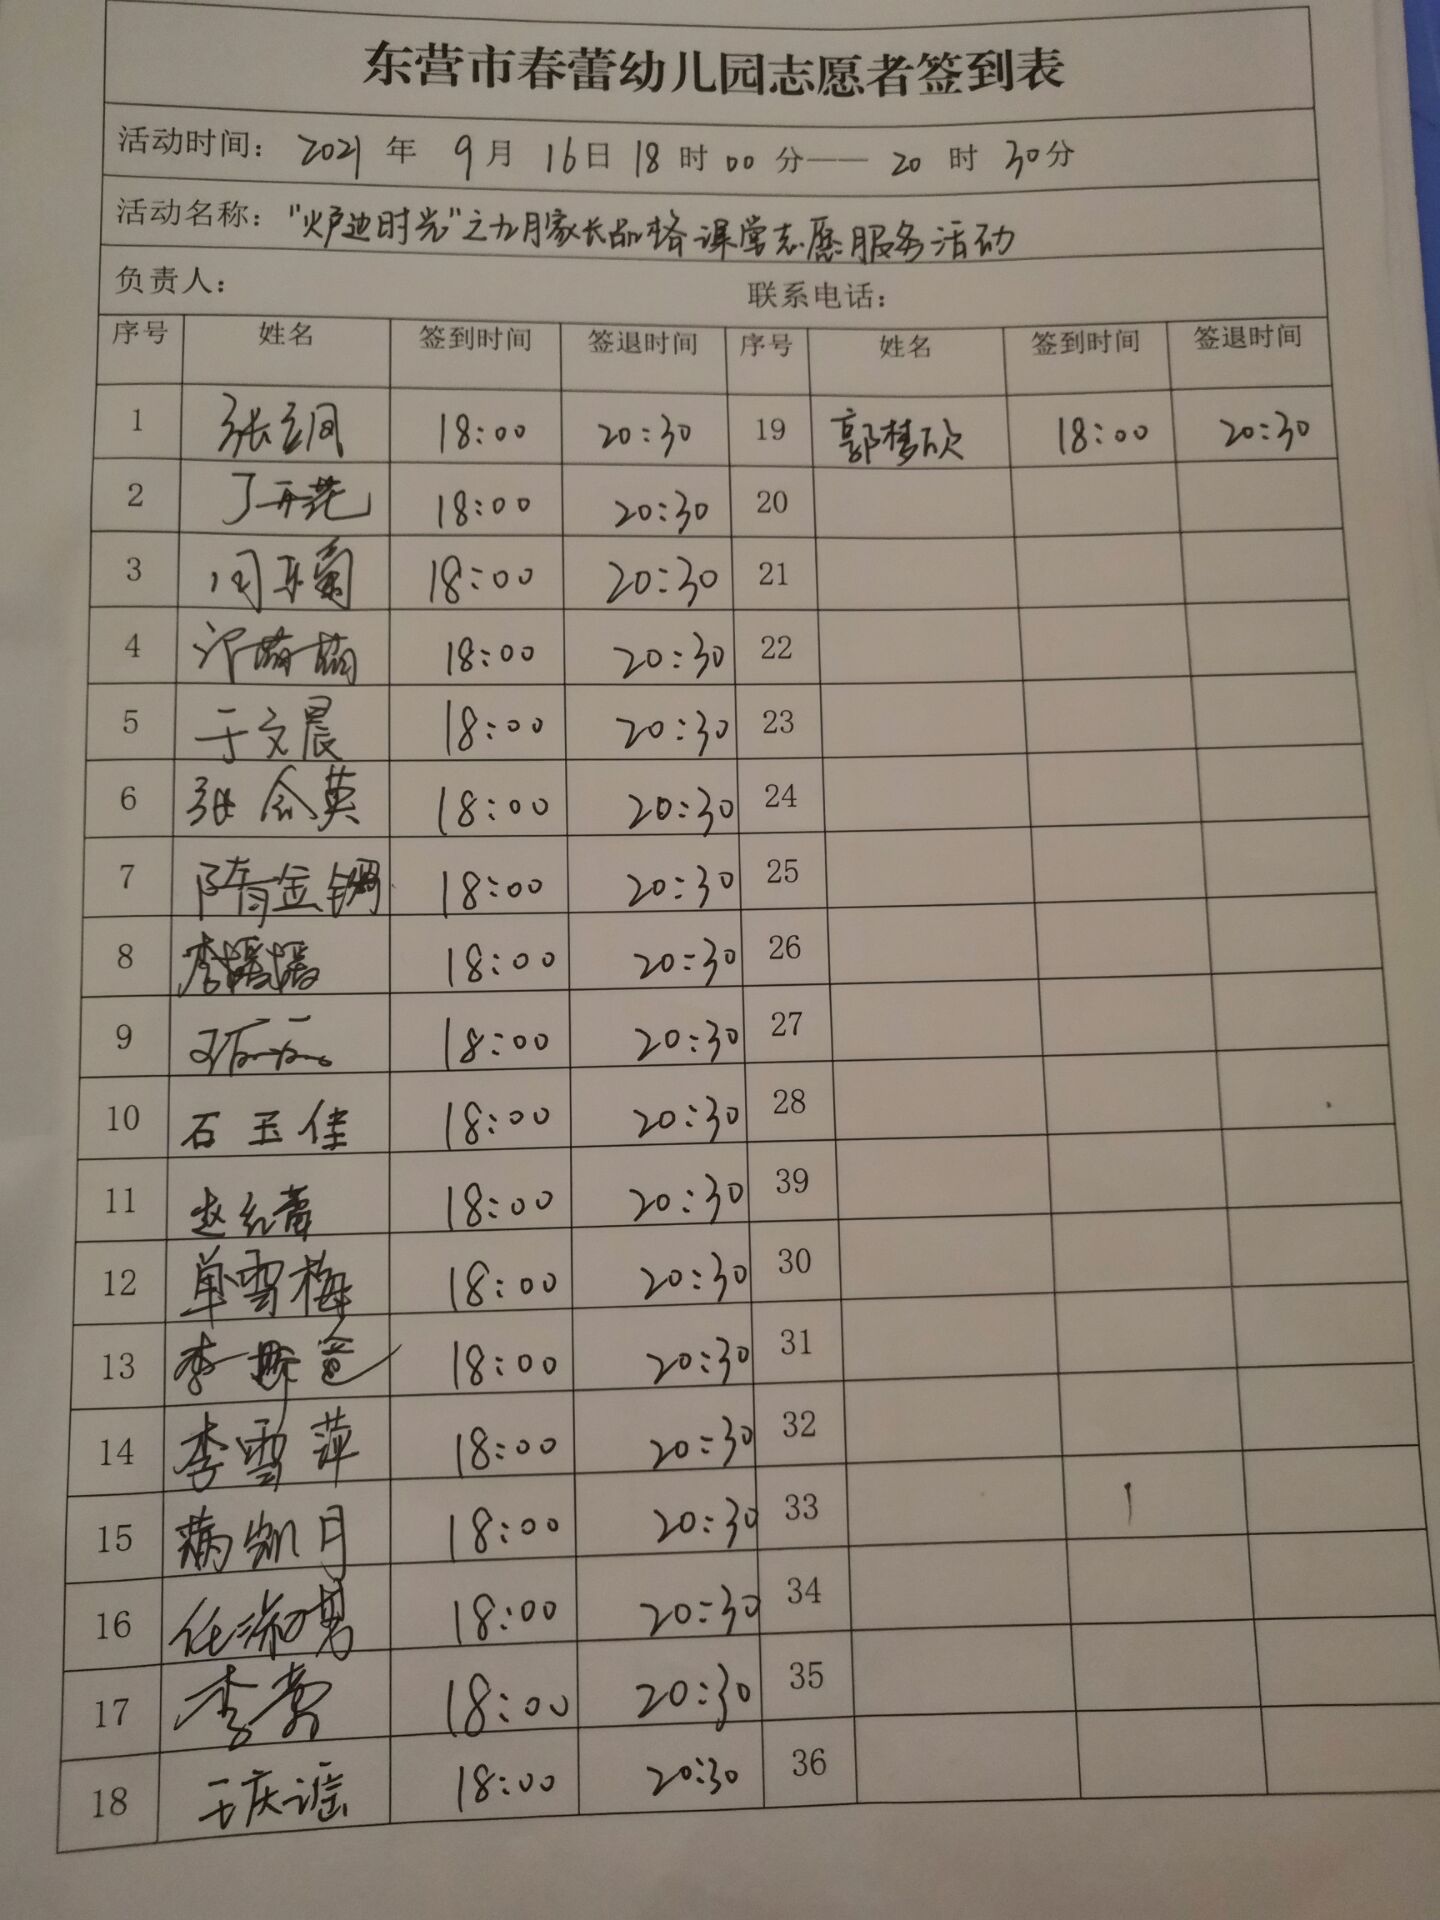 东营市春蕾幼儿园志愿者签到表
活动时间： 2021 年 9 月 16 日 18 时 00 分—— 20 时 30 分
活动名称：“炉边时光”之九月家长品格课堂志愿服务活动
负责人： 联系电话：
序号 姓名 签到时间 签退时间 序号 姓名 签到时间 签退时间
1 18:00 20:30 19 郭梦欣 18:00 20:30
2 18:00 20:30 20
3 18:00 20:30 21
4 18:00 20:30 22
5 于文晨 18:00 20:30 23
6 18:00 20:30 24
7 18:00 20:30 25
8 18:00 20:30 26
9 18:00 20:30 27
10 石玉佳 18:00 20:30 28
11 赵红蕾 18:00 20:30 39
12 单雪梅 18:00 20:30 30
13 18:00 20:30 31
14 李雪萍 18:00 20:30 32
15 18:00 20:30 33
16 18:00 20:30 34
17 18:00 20:30 35
18 王庆谣 18:00 20:30 36